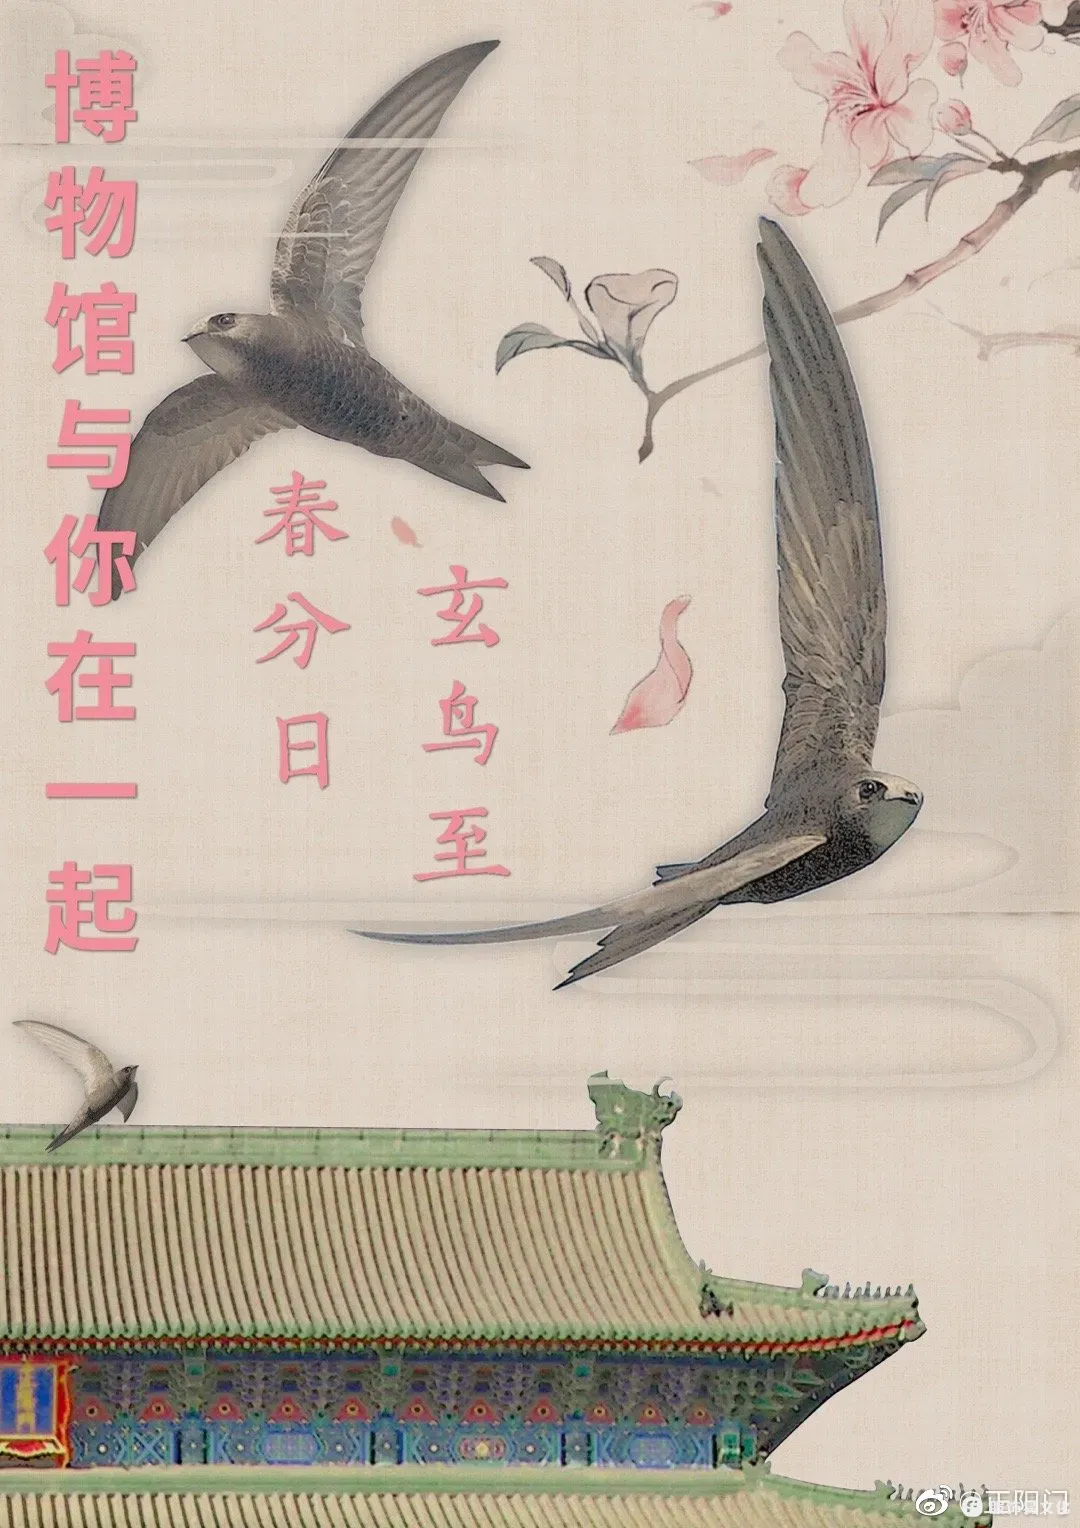 博物馆与你在一起
春分日
玄鸟至
@正阳门